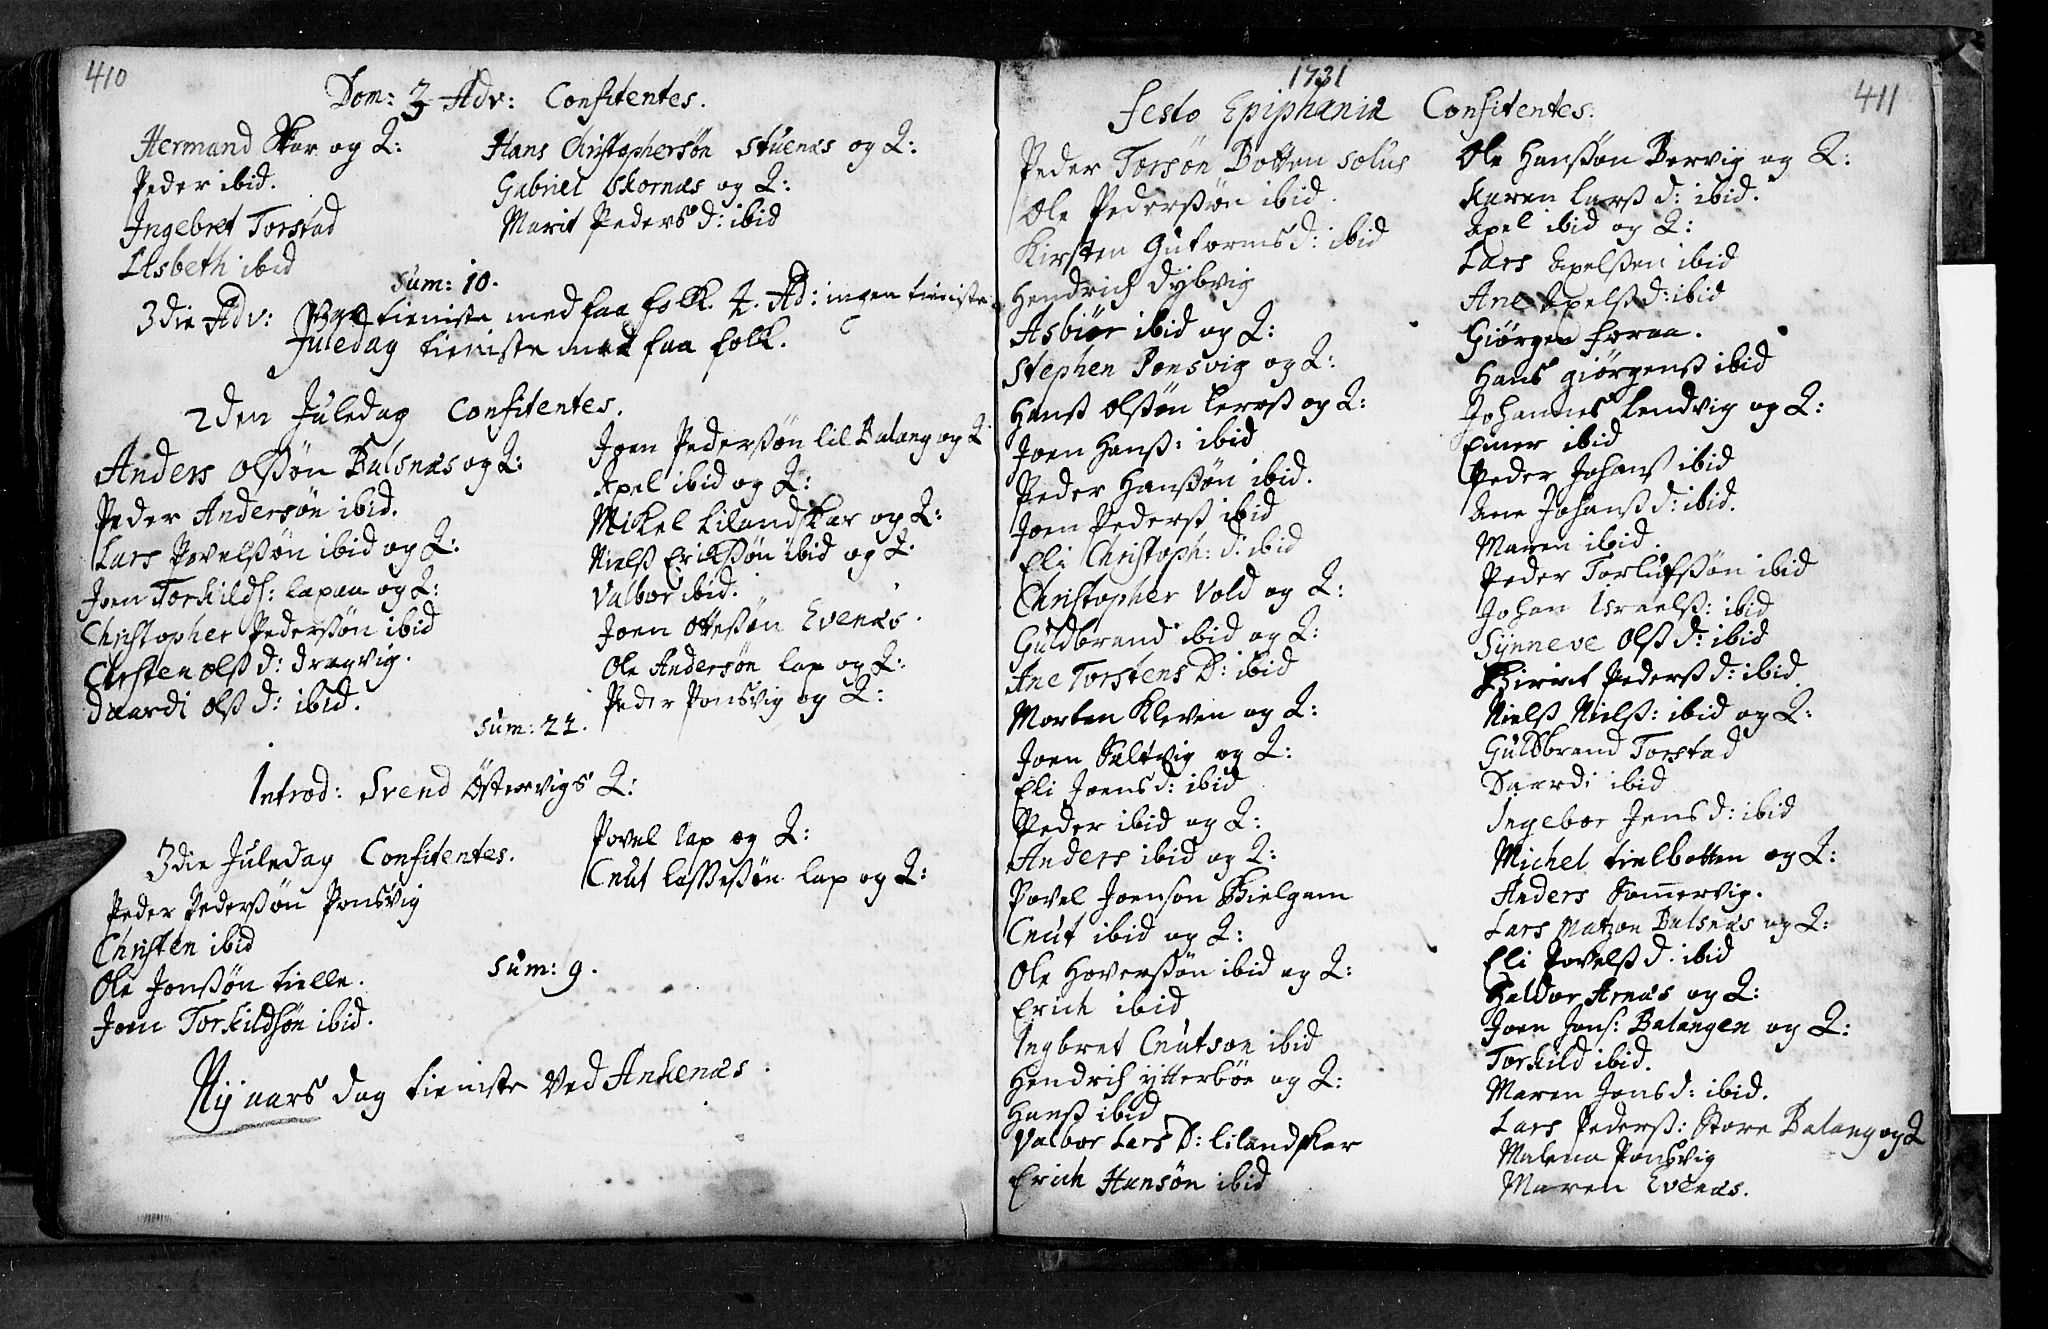 410
Dom: 3 Adv: Confitentes.
Hermand Skar og Q:
Peder ibid.
Ingebret Torstad
Elsbeth ibid
Hans Christophersøn Stuenæs og Q:
Gabriel Skornæs og Q:
Marit Peders d: ibid
Sum: 10.
3die Adv: var tieniste med faa folk. 4. Ad: ingen tieniste.
Juledag tieniste med faa folk.
2den Juledag Confitentes.
Anders Olssøn Balsnæs og Q:
Peder Andersøn ibid.
Lars Povelssøn ibid og Q:
Joen Torkilds: lapaa og Q:
Christopher Pederssøn ibid
Kirsten Olss d: dragvig.
Daardi Olss d: ibid.
Joen Pederssøn lil Balang og Q
Axel ibid og Q:
Mikel Lilandskar og Q:
Nielss Erikssøn ibid og Q.
Valbor ibid.
Joen Ottessøn Evenæs.
Ole Andersøn lap og Q:
Peder Ponsvig og Q:
Sum: 22.
Introd: Svend Østervigs Q:
3die Juledag Confitentes.
Peder Pederssøn Ponsvig
Christen ibid
Ole Jonssøn tielle.
Joen Torkildsøn ibid.
Povel lap og Q:
Cnut lassessøn lap og Q:
Sum: 9.
Nÿ aars dag tieniste ved Ankenæs.
1731
411
Festo Epiphaniæ Confitentes.
Peder Torsøn Botten solus
Ole Pederssøn ibid.
Kirsten Gutorms d: ibid
Hendrich dybvig
Asbiør ibid og Q:
Stephen Ponsvig og Q:
Hanss Olssøn Leross og Q:
Joen Hanss: ibid
Peder Hanssøn ibid.
Joen Pederss ibid
Eli Christoph: d: ibid
Christopher Vold og Q:
Guldbrand ibid og Q:
Ane Torstens D: ibid
Morten Kleven og Q:
Joen Saltvig og Q:
Eli Joens d: ibid
Peder ibid og Q:
Anders ibid og Q:
Povel Joenson Skielgam
Cnut ibid og Q:
Ole Hoverssøn ibid og Q:
Erich ibid
Ingbret Cnutson ibid
Hendrich ytterbøe og Q:
Hanss ibid
Valbor Lars D: lilandskar
Erich Hansøn ibid
Ole Hanssøn Bervig og Q:
Karen Larss d: ibid.
Axel ibid og Q:
Lars Axelssen ibid
Ane Axelss d: ibid
Giørgen Foraa.
Hans giørgenss ibid
Johannes Lendvig og Q:
Einer ibid
Peder Johans ibid
Ane Johanss d: ibid.
Maren ibid.
Peder Torlufssøn ibid
Johan Israelss: ibid
Synneve Olss d: ibid
Birrit Pederss d: ibid
Nielss Nielss: ibid og Q:
Guldbrand Torstad
Daardi ibid
Ingebor Jens d: ibid
Michel tielbotten og Q:
Anders Somervig.
Lars Matzon Balsnæs og Q:
Eli Povelss d: ibid
Haldor Arnæs og Q:
Joen Jons: Balangen og Q:
Torkild ibid.
Maren Jons d: ibid.
Lars Pederss: Store Balang og Q
Malena Ponsvig
Maren Evenæs.